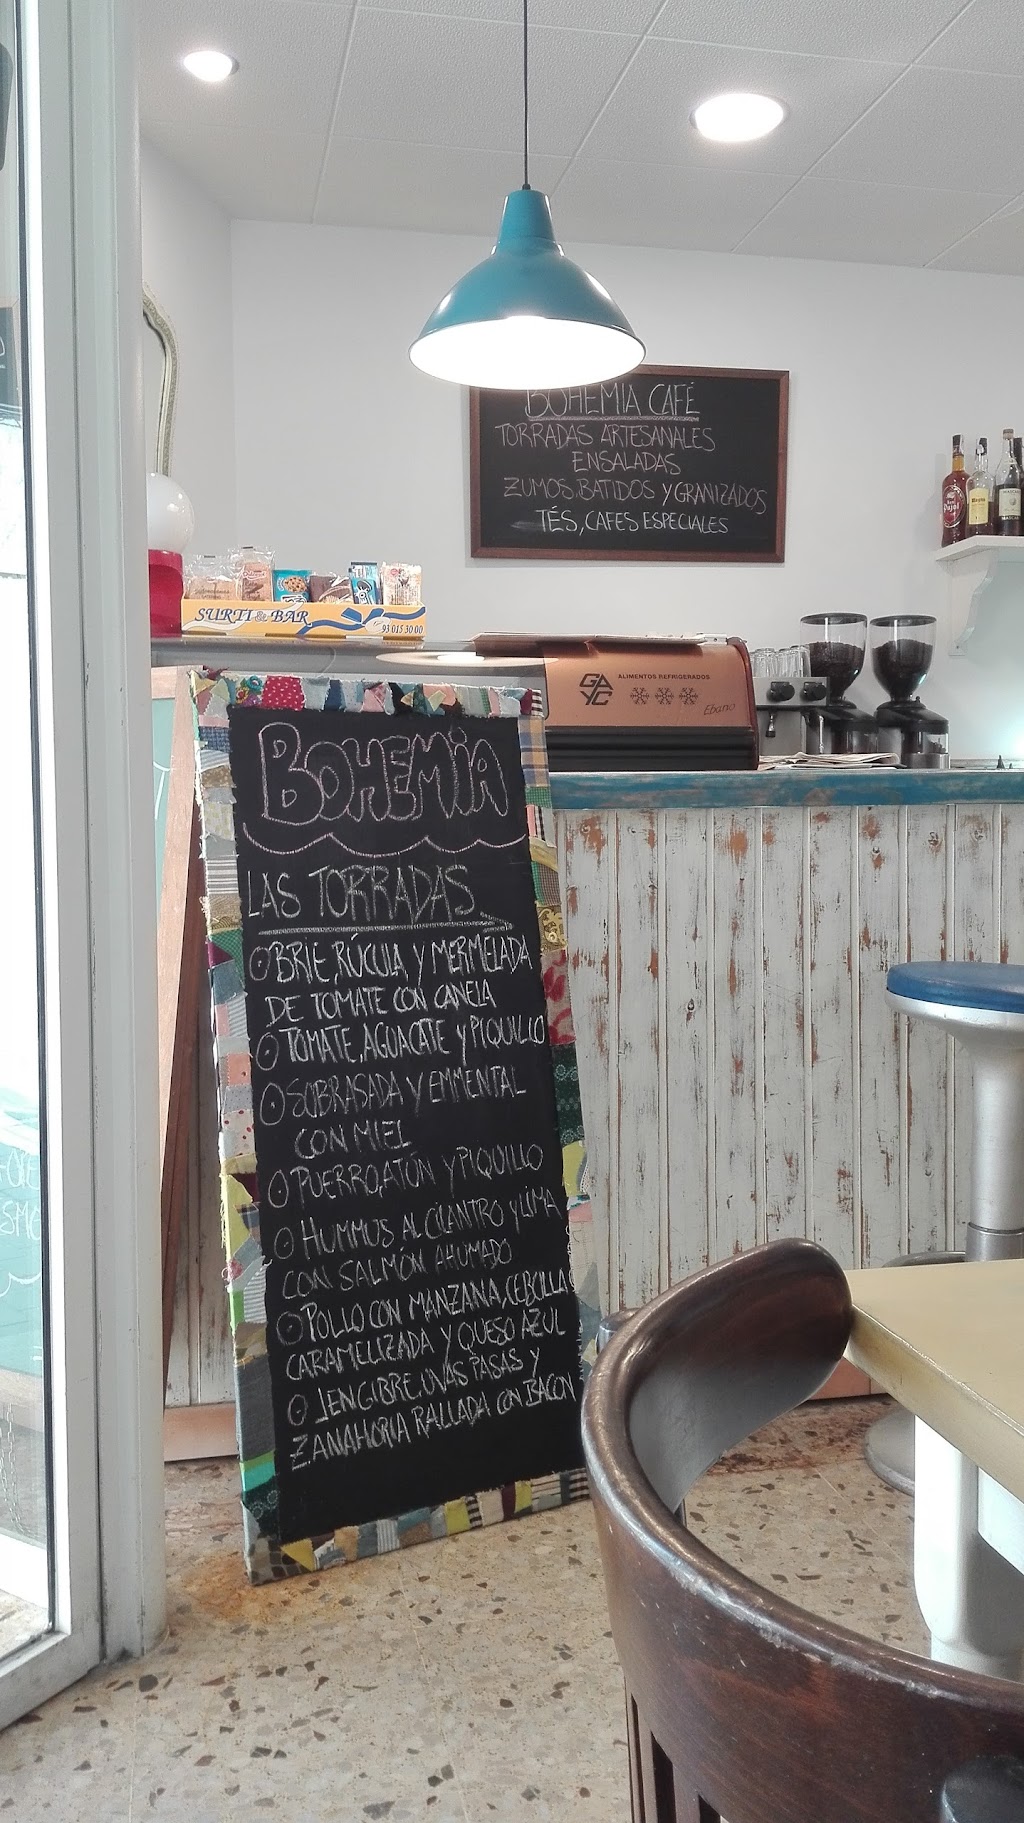 BOHEMIA CAFÉ
TORRADAS ARTESANALES
ENSALADAS
ZUMOS, BATIDOS Y GRANIZADOS
TÉS, CAFES ESPECIALES
SURTI & BAR
93 015 30 00
GAYC
ALIMENTOS REFRIGERADOS
Ebano
BOHEMIA
LAS TORRADAS
BRIE, RÚCULA, Y MERMELADA
DE TOMATE CON CANELA
TOMATE, AGUACATE Y PIQUILLO
SOBRASADA Y EMMENTAL
CON MIEL
PUERRO, ATÚN Y PIQUILLO
HUMMUS AL CILANTRO Y LIMA
CON SALMÓN AHUMADO
POLLO CON MANZANA, CEBOLLA
CARAMELIZADA Y QUESO AZUL
JENGIBRE, UVAS PASAS Y
ZANAHORIA RALLADA CON BACON